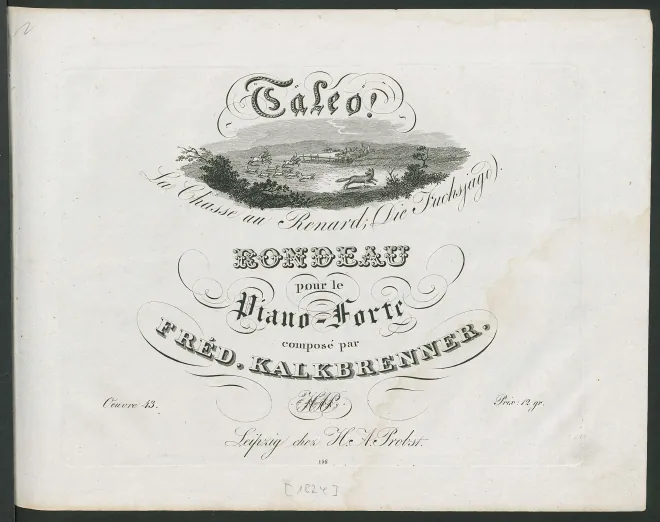 Taleo!
La Chasse au Renard; (Die Fuchsjagd).
RONDEAU
pour le
Piano-Forte
composé par
FRÉD. KALKBRENNER.
HAP.
Oeuvre 43.
Prix: 12 gr.
Leipzig chez H. A. Probst.
[1824]